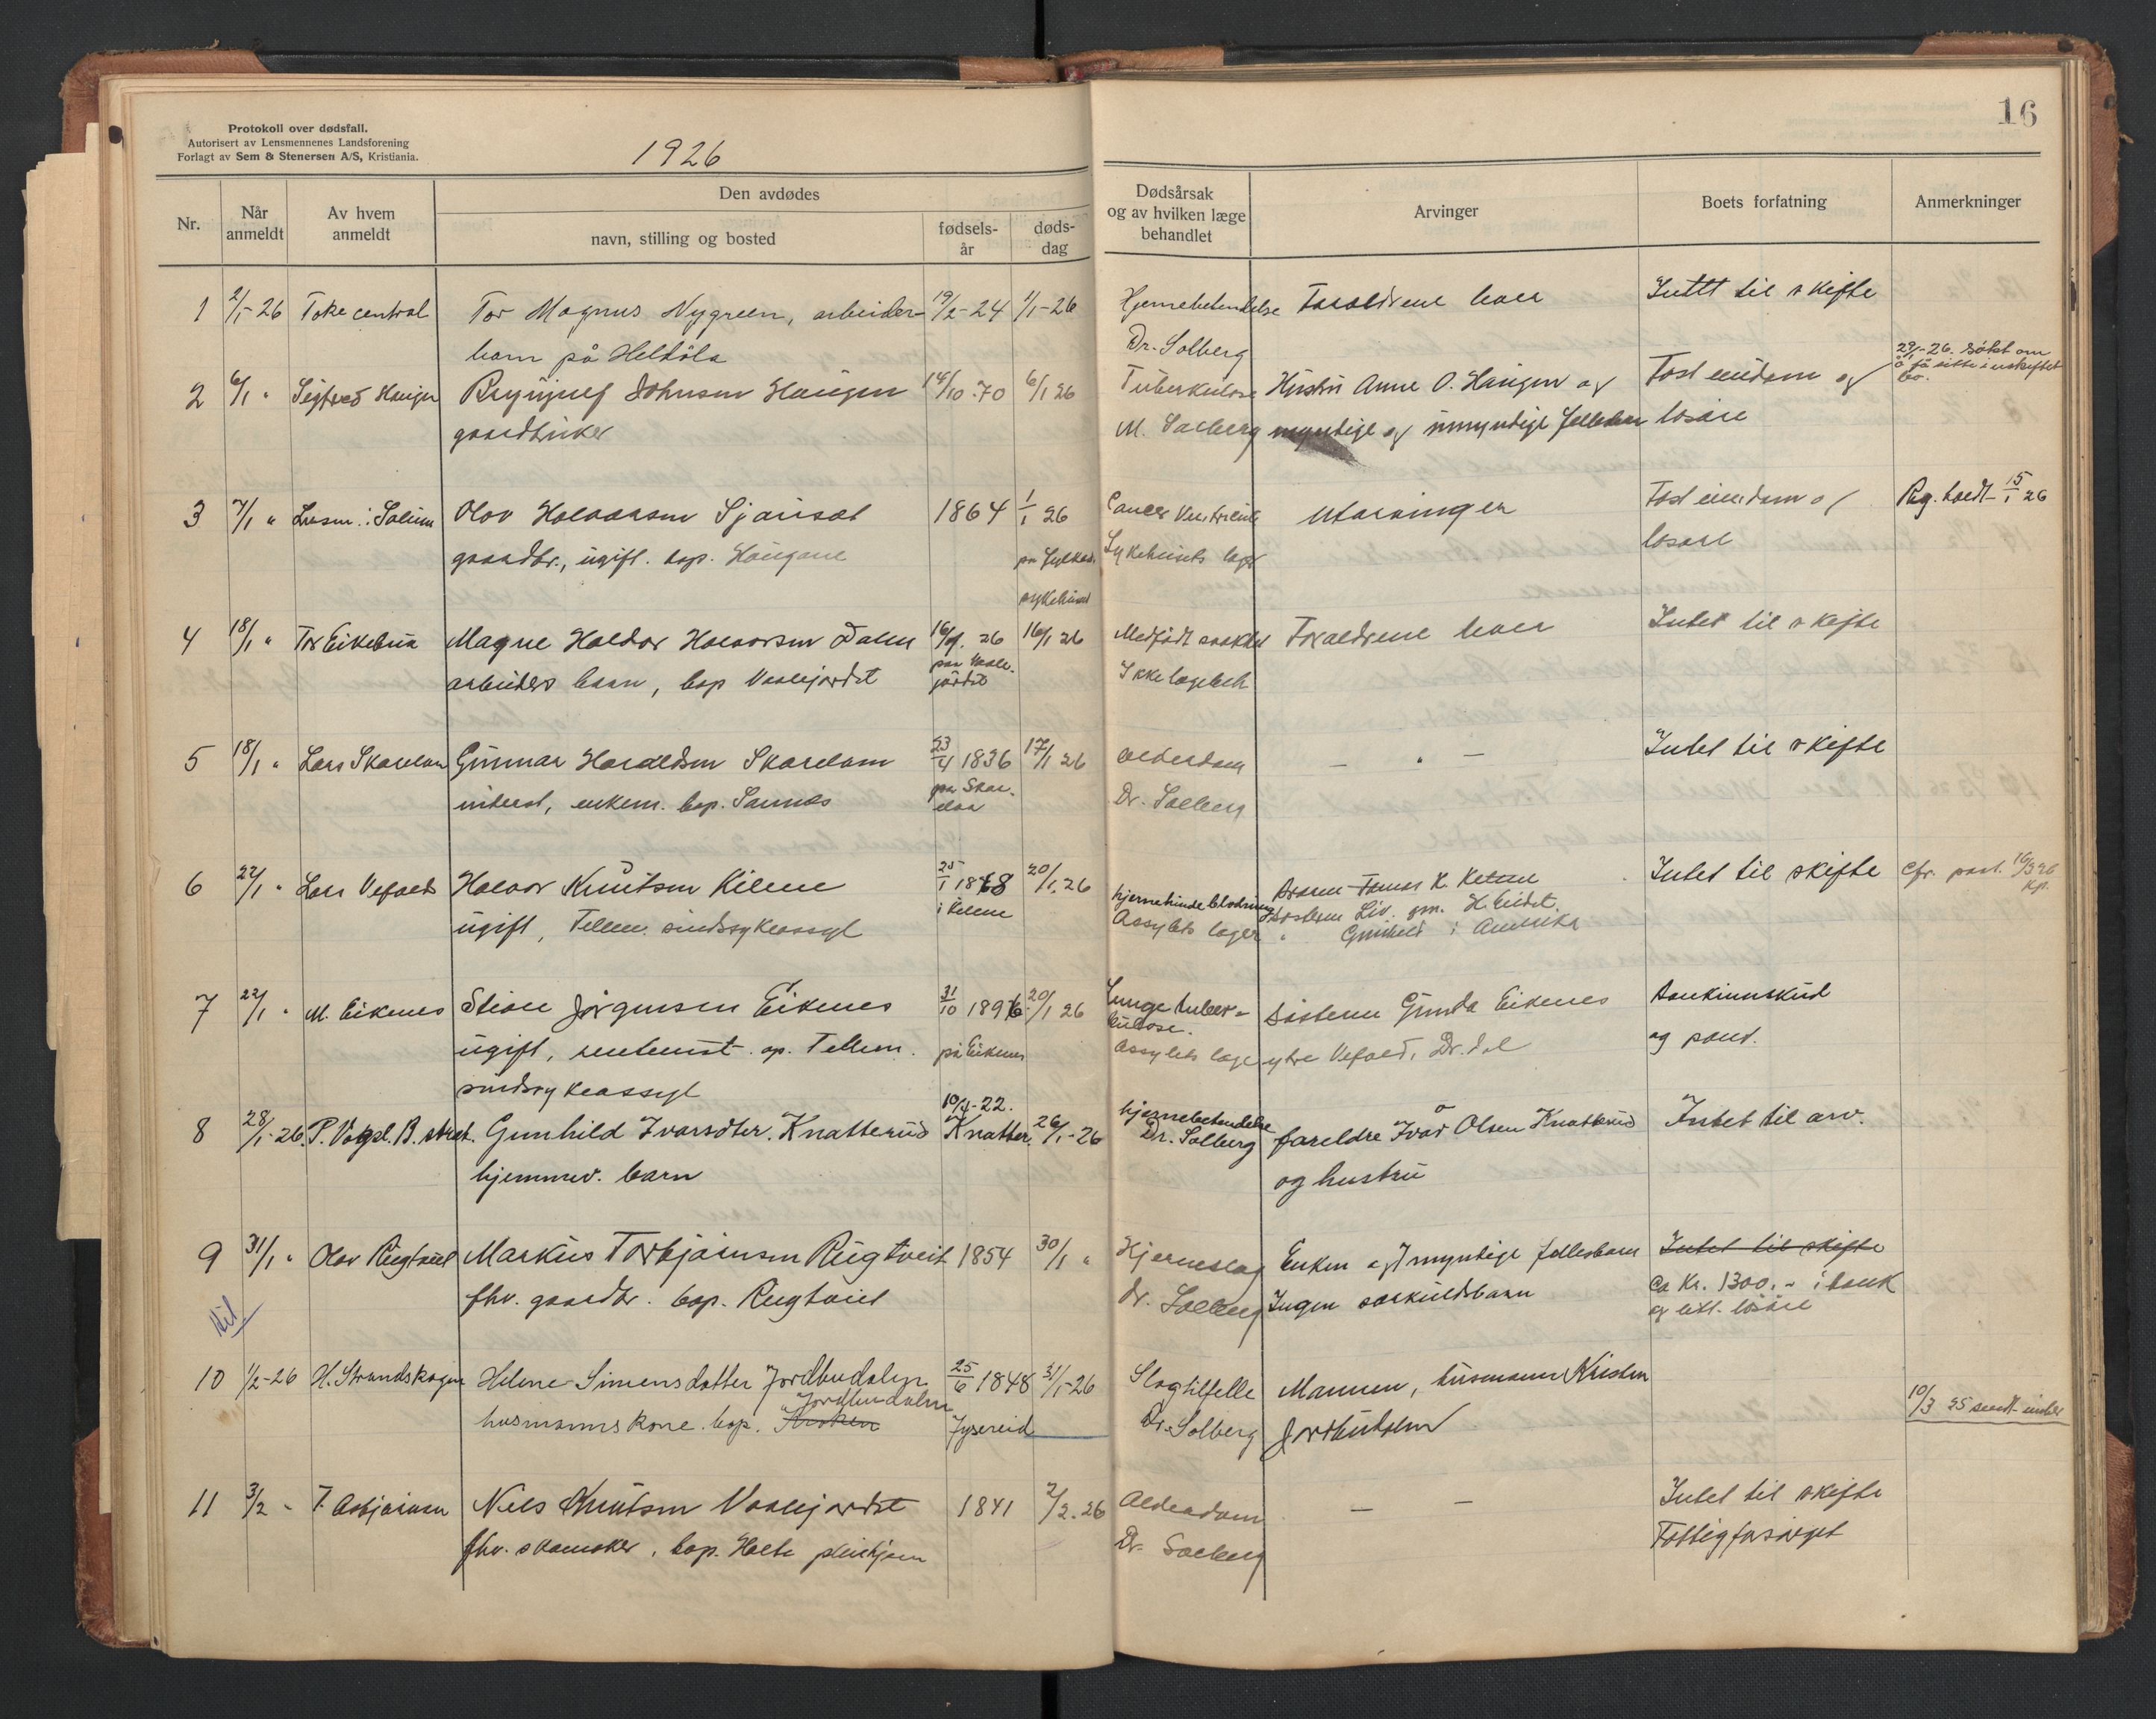 Protokoll over dødsfall.
Autorisert av Lensmennenes Landsforening
Forlagt av Sem & Stenersen A/S, Kristiania.
1926
16
Nr.
Når anmeldt
Av hvem anmeldt
Den avdødes
navn, stilling og bosted
fødsels-år
døds-dag
Dødsårsak og av hvilken læge behandlet
Arvinger
Boets forfatning
Anmerkninger
1 2/1-26 Toke central Tor Magnus Nygreen, arbeider- 19/2-24 1/1-26 Hjernebetendelse Foraldrene lever Intet til skifte
barn på Heldøla Dr. Solberg
29/1-26. Søkt om
å få sitte i uskiftet
bo.
2 6/1 " Sigfred Haugen Brynjulf Johnsen Haugen 14/10-70 6/1 26 Tuberkulose Hustru Anne O. Haugen og Fast eiendom og
gaardbruker M. Solberg myndige og umyndige fellesbarn løsøre
3 7/1 " Lensm. i Solum Olov Halvorsen 1864 1/1 26 Cancer Ventriculi Utarvinger Fast eiendom og Reg. holdt 15/1 26
gaardbr., ugift. bop. Haugane på Sykehusets læge løsøre
sykehuset
4 18/1 " Tor Eikebua Magne Haldor Halvorsen Dalen 16/1. 26 16/1 26 Medfødt svakhet Foraldrene lever Intet til skifte
arbeiders barn, bop Vaalejordet paa Vaale-
jordet Ikke lægebeh
5 18/1 " Lars Skarelven Gunnar Haraldsen 23/4 1836 17/1 26 Alderdom — " — Intet til skifte
enkem. bop. Sannes paa Dr. Solberg
6 22/1 " Lars Vefald Halvor Knutsen Kilene 25/1 1868 20/1 26 hjernehindeblødning Broren Tomas K. Kilene Intet til skifte Cfr. post. 16/3 26
ugift, Telem. sindssykeassyl i Kilene Assylets læger Søsteren Liv. gm. H. Eidet.
" Gunhild i Amerika
7 22/1 " M. Eikenes Stian Jørgensen Eikenes 31/10 1896 20/1 26 Lunge tuber- søsteren Gunda Eikenes Bankinnskud
kulose.
ugift, op. Telem. på Eikenes Assylets læge ytre Vefald, Dr.dal og pant.
sindssykeassyl
8 28/1-26. P. Vogsl. B. stret. Gunhild Ivarsdter. Knatterud 10/4-22. Knatter. 26/1-26 hjernebetendelse foreldre Ivar Olsen Knatterud Intet til arv.
hjemmev. barn Dr. Solberg og hustru
9 31/1 " Olov Rugtveit Markus Torbjørnsen Rugtveit 1854 30/1 " Hjerneslag Enken og 7 myndige fellesbarn Intet til skifte
fhv. gaardbr. bop. Rugtveit Dr. Solberg Ingen særkuldsbarn Ca Kr. 1300.- i bank
og litt løsøre
10 1/2-26 H. Strandskogen Helene Simensdatter Jordbudalen 25/6 1848 31/1-26 Slagtilfelle Mannen, husmann Kristen
Jordbudalen
husmannskone. bop. Kroken Jysereid Dr. Solberg Jordbudalen
10/3 25 sendt
11 3/2 " T. Asbjørnsen Nils Knutsen Vaalejordet 1841 2/2.26 Alderdom — — Intet til skifte
fhv. skomaker, bop. Holte pleiehjem Dr. Solberg Fattigforsørget